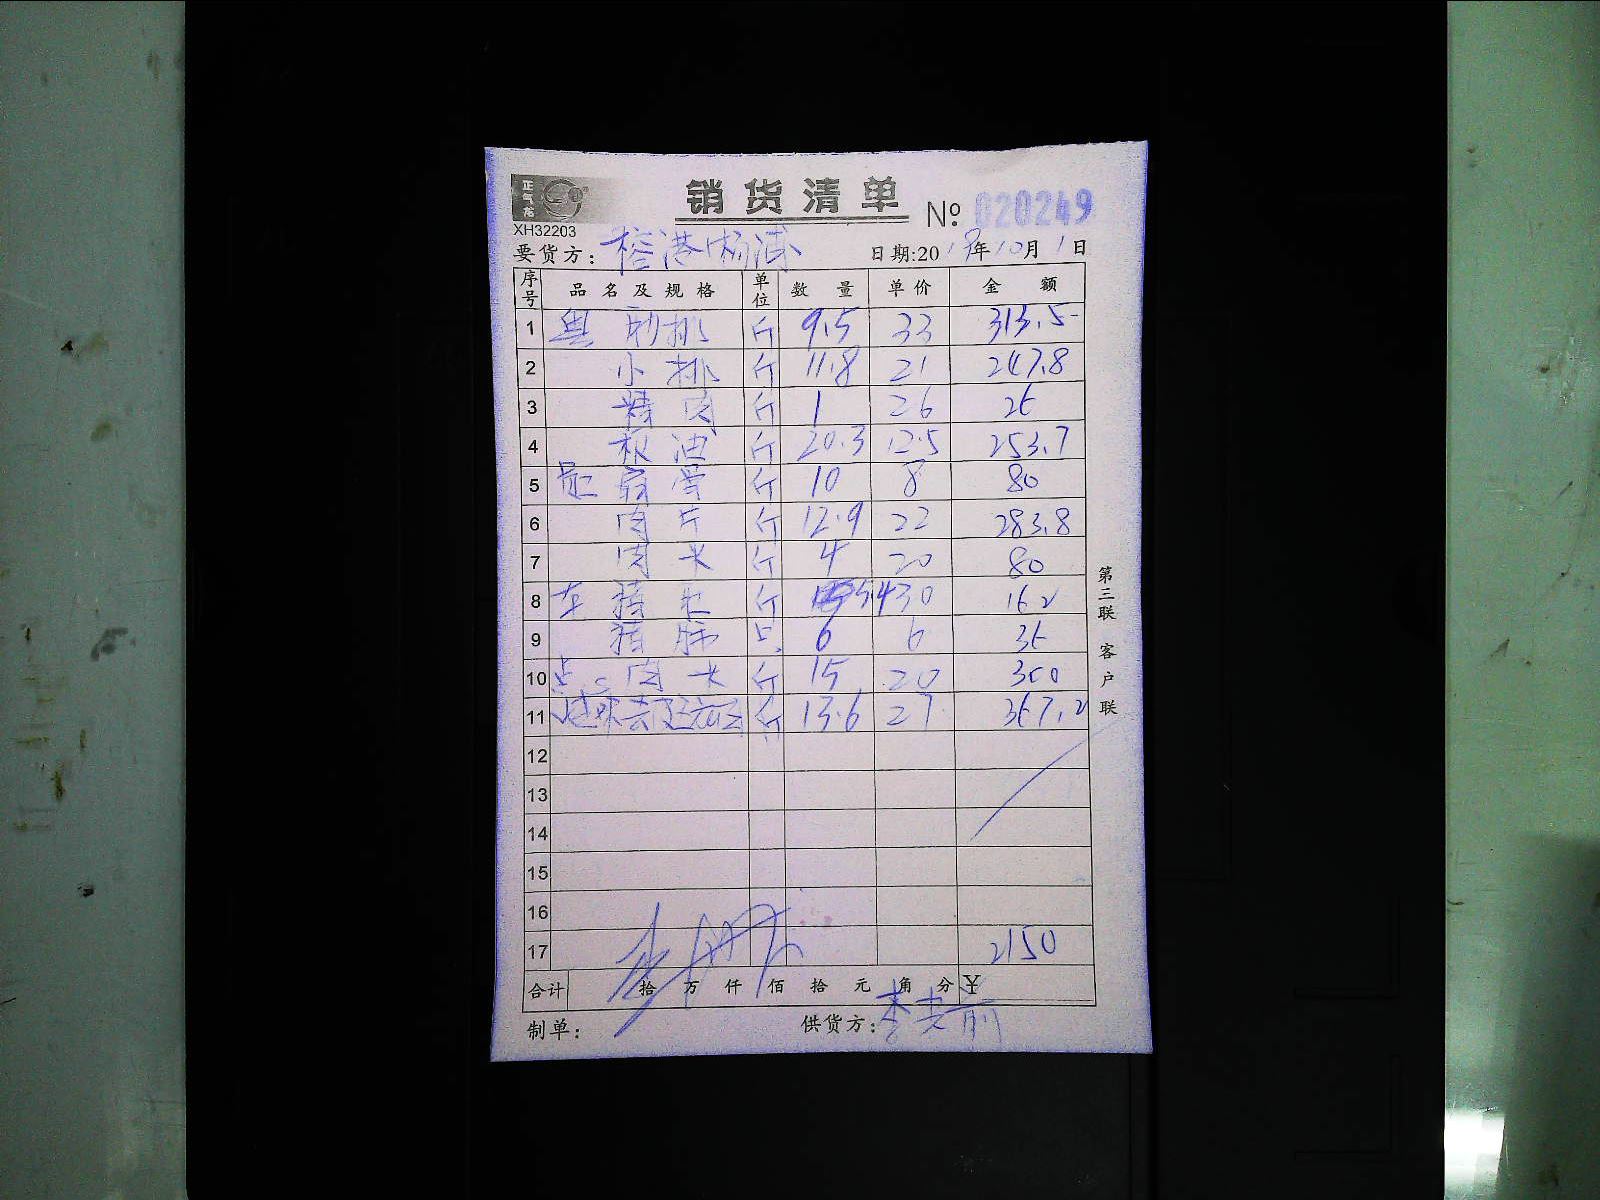 正气龙
销货清单
XH32203
№ 020249
要货方：榕港 日期:2019年10月1日
序号 品名及规格 单位 数量 单价 金额
1 奥 肋排 斤 9.5 33 313.5
2 小排 斤 11.8 21 247.8
3 精肉 斤 1 26 26
4 板油 斤 20.3 12.5 253.7
5 扇骨 斤 10 8 80
6 肉片 斤 12.9 22 283.8
7 肉 斤 4 20 80
8 猪 斤 5.4 30 162
9 猪肺 6 6 36
10 点 肉 斤 15 20 300
11 斤 13.6 27 367.2
12
13
14
15
16
17 2150
合计 拾 万 仟 佰 拾 元 角 分 ¥
制单： 供货方：李 前
第三联 客户联